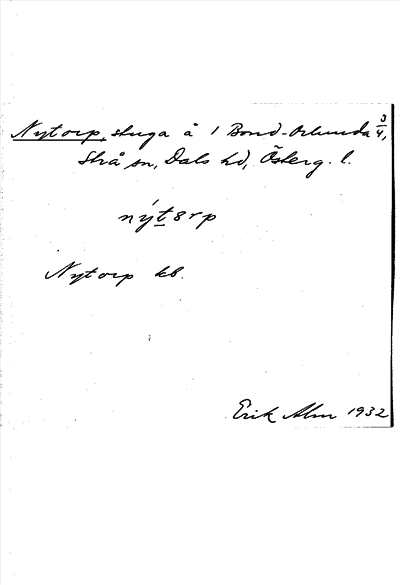 Nytorp, stuga å 1 Bond-Orlunda 3/4,
Strå sn, Dals hd, Österg. l.
nýt8rp
Nytorp kb.
Erik Alm 1932